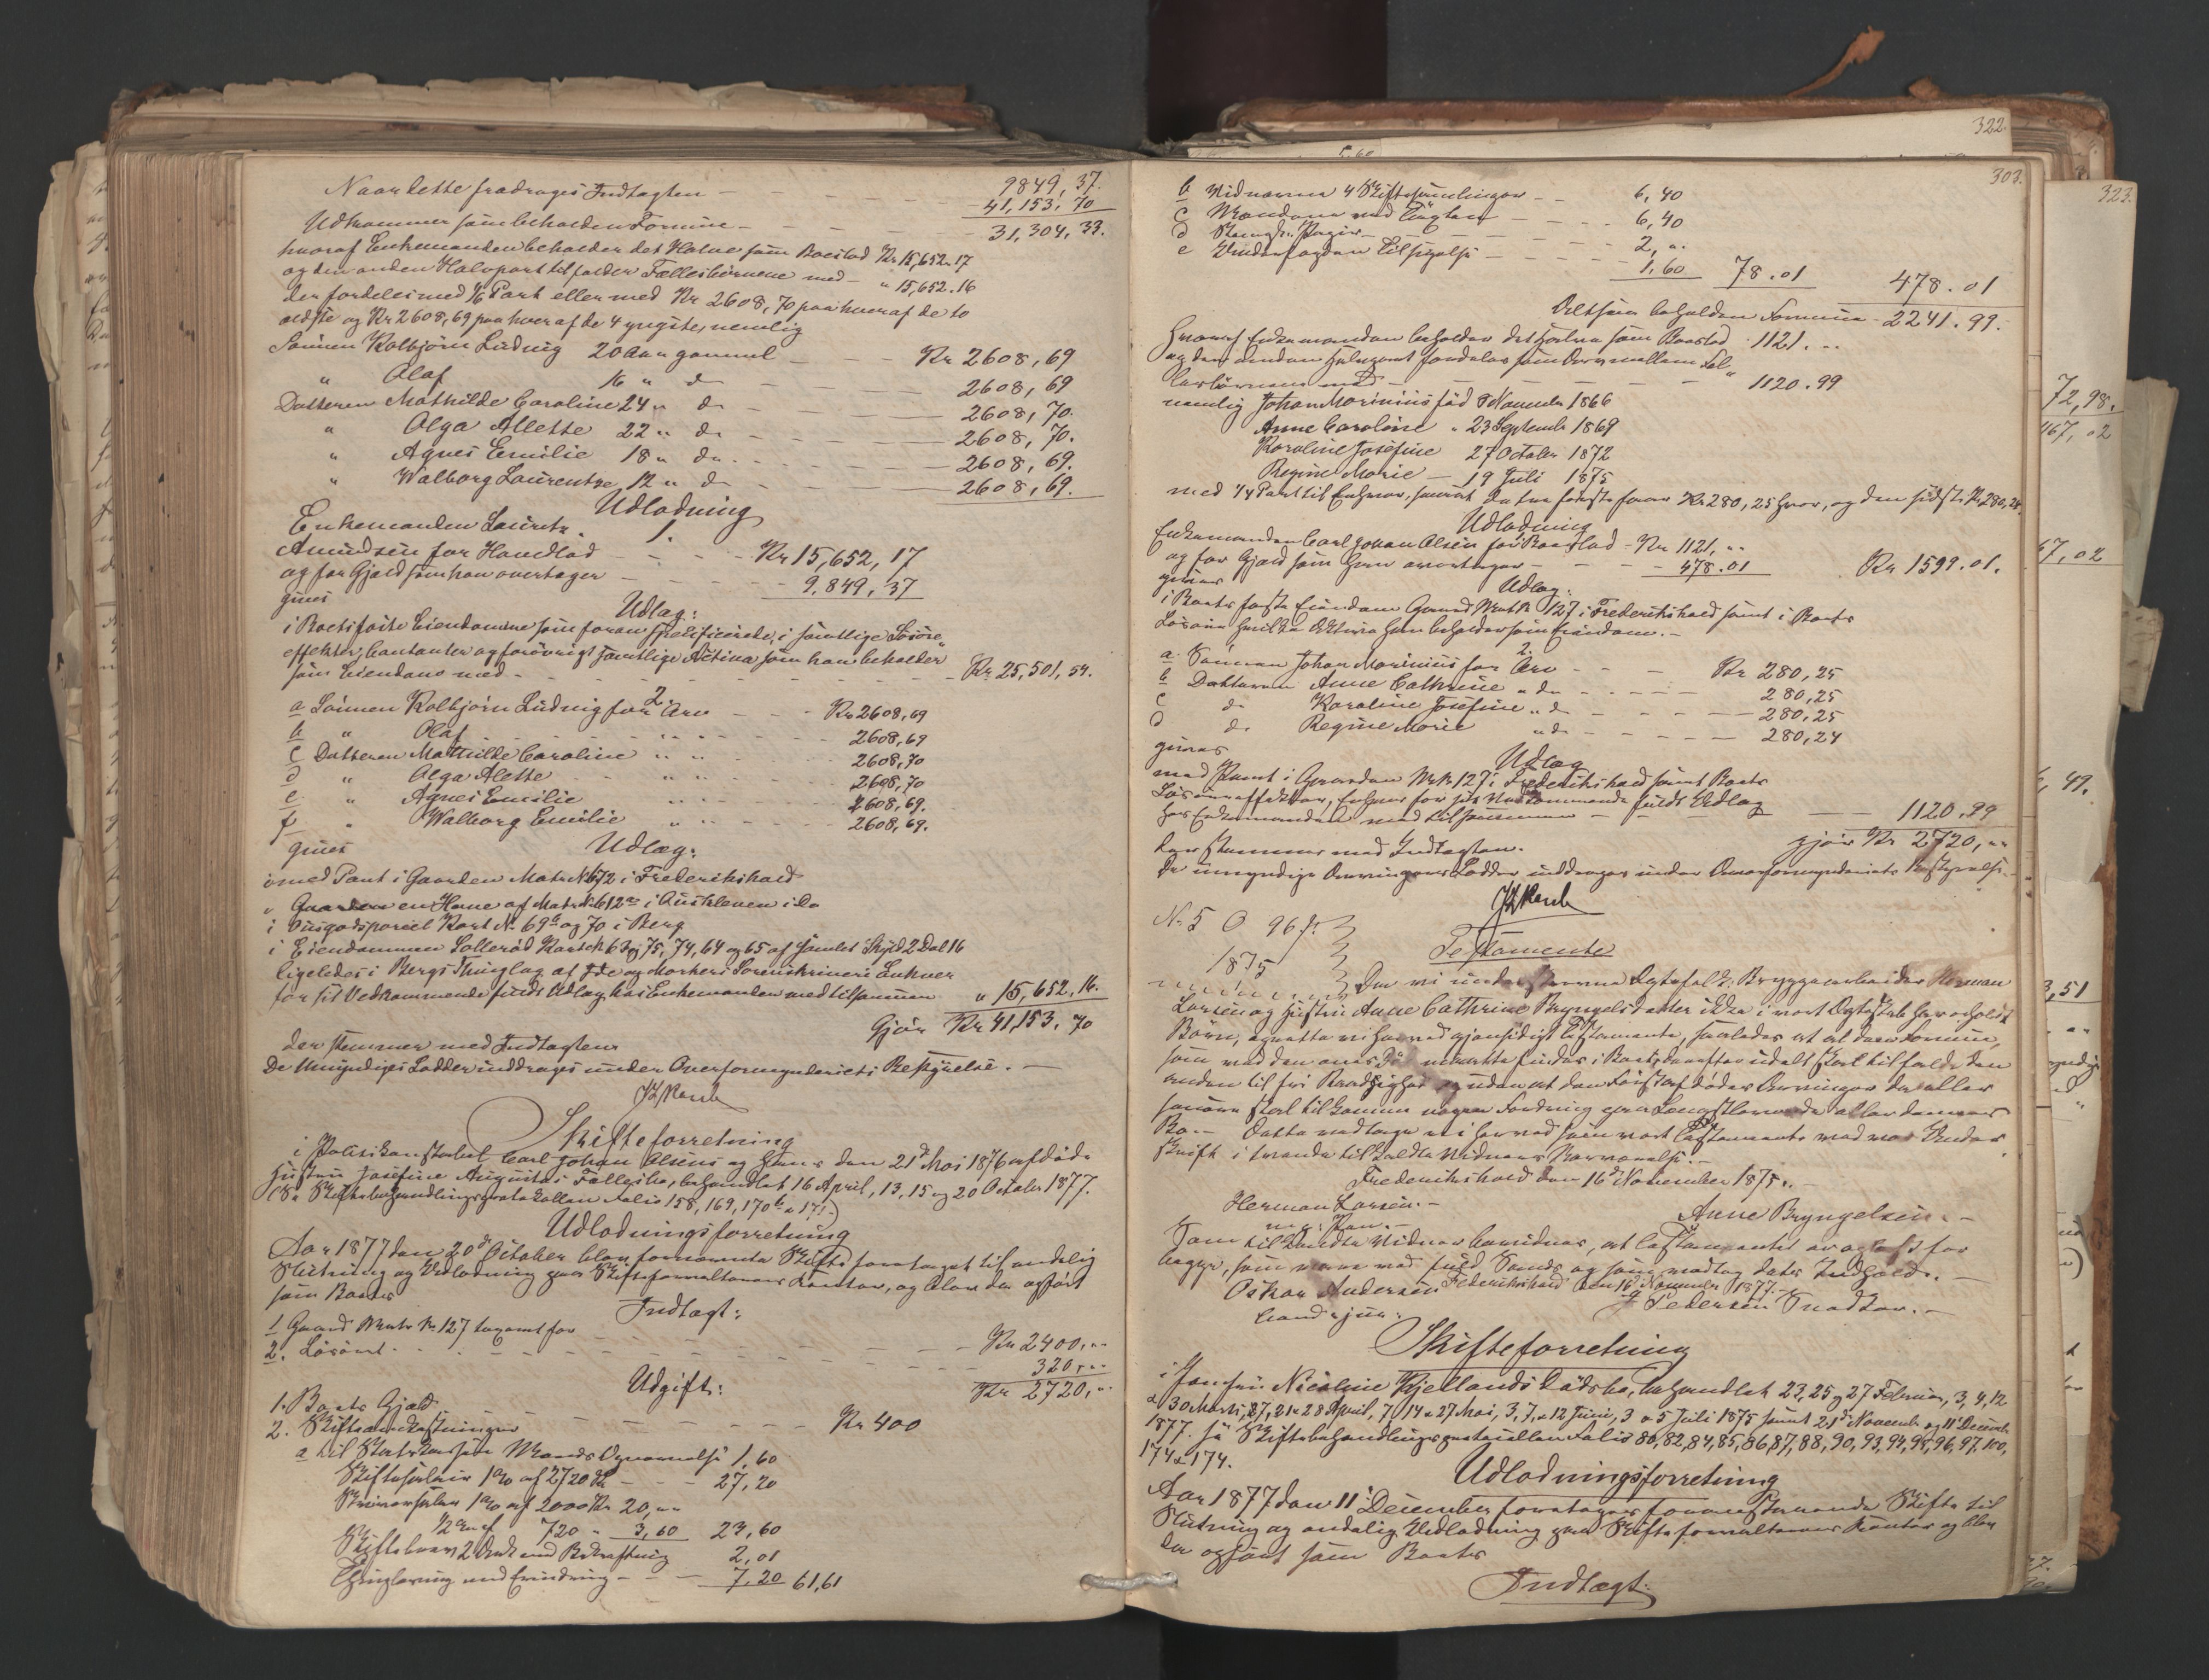 Naar dette fradrages Indtægten — 9849,37.
41,153,70
Udkommer som beholden Formue — 31,304,33.
hvoraf Enkemanden beholder det Halve som Boeslod Kr 15,652.17
og den anden Halvpart tilfalder Fællesbørnene med — " 15,652.16
der fordeles med 1/6 Part eller med Kr 2608,70 paa hver af de to
ældste og Kr 2608,69 paa hver af de 4 yngste, nemlig
Sønnen Kolbjørn Ludvig 20 Aar gammel — Kr 2608,69
" Olaf 16 " do — 2608,69
Datteren Mathilde Caroline 24 " do — 2608,70.
" Olga Alette 22 " do — 2608,70.
" Agnes Emilie 18 " do — 2608,69.
" Walborg Laurentze 12 " do — 2608,69.
Udlodning
1.
Enkemanden Lauritz
Amundsen for Hovedlod — Kr 15,652,17
og for Gjæld som han overtager — 9.849,37
gives
Udlæg:
i Boets faste Eiendomme som foran specificerede, i samtlige Løsøre
effekter, Contanter og forøvrigt samtlige Activa som han beholder
som Eiendom med — Kr 25,501,54.
2.
a Sønnen Kolbjørn Ludvig for Arv — Kr 2608,69
b " Olaf " " 2608,69
c Datteren Mathilde Caroline " " 2608,70
d " Olga Alette " " 2608,70
e " Agnes Emilie " " 2608,69.
f " Walborg Emilie " " 2608,69.
gives
Udlæg:
med Pant i Gaarden Matr No 672 i Frederikshald
" en Have af Matr No 612 a i do
i Kart No 69 b og 70 i Berg
i Eiendommen Sollerød 75, 74, 64 og 65 af samlet Skyld 2 Dal 16
ligeledes i Bergs Thinglag af Ide og Markers Sorenskriveri Enhver
for sit Vedkommende fulds Udlæg hos Enkemanden med tilsammen " 15,652,16.
Gjør Kr 41,153.70
der stemmer med Indtægten
De Umyndiges Lodder inddrages under Overformynderiets Bestyrelse. —
Skifteforretning
i Politikonstabel Carl Johan Olsens og Hans den 21de Mai 1876 afdøde
Hustru Josefine Augustas Fællesbo, behandlet 16 April, 13, 15 og 20 October 1877.
(Se Skiftebehandlingsprotokollen Folio 158, 169, 170 b & 171.)
Udlodningsforretning
Aar 1877 den 20de October blev fornævnte Skifte foretaget til endelig
Slutning og Udlodning paa Skifteforvalterens Kontor, og blev da opført
som Boets
Indtægt:
1 Gaard Matr No 127 taxeret for — Kr 2400,"
2. Løsøret — 320,"
Kr 2720,"
Udgift:
1. Boets Gjæld — Kr 400
2. Skifteomkostninger
a til Statskassen Mænds Opnævnelse 1,60
Skiftesalær 1% af 2720 Kr — 27,20
Skriversalær 1% af 2000 Kr 20,"
1/2 % af 720 " 3,60 23,60
Skiftebrev 2 Ark med Bekræftning 2,01
Thinglæsning med Erindring — 7.20 61,61
322.
303.
323.
b Vidnerne 4 Skiftesamlinger — 6,40
c Mændene ved Taxten — 6,40
d Stemplt. Papir — 2,"
e Underfogden Tilsigelse — 1,60 78.01 478.01
Altsaa beholden Formue — 2241.99.
Hvoraf Enkemanden beholder det halve som Boeslod 1121."
og den anden Halvpart fordeles som Arv mellem Fæl
lesbørnene med — 1120.99
nemlig Johan Marinius fød 8 November 1866
Anne Caroline " 23 September 1869
Karoline Josefine 27 October 1872
Regine Marie — 19 Juli 1875
med 1/4 Part til Enhver, saaat de tre første faar Kr 280,25 hver, og den sidste Kr 280,24.
Udlodning
Enkemanden Carl Johan Olsen for Boeslod — Kr 1121,"
og for Gjæld som han overtager — 478.01 Kr 1599.01.
gives
Udlæg:
i Boets faste Eiendom Gaard Matr No 127 i Frederikshald samt i Boets
Løsøre hvilke Aktiva han beholder som Eiendom. —
2.
a. Sønnen Johan Marinius for Arv — Kr 280,25
b Datteren Anne Cathrine " do — 280,25
c do Karoline Josefine " do — 280,25
d do Regine Marie " do — 280,24
gives
Udlæg
med Pant i Gaarden Matr No 127 i Frederikshald samt Boets
Løsøreeffekter, Enhver for sit Vedkommende fulds Udlæg
hos Enkemanden med tilsammen — 1120.99
gjør Kr 2720,"
der stemmer med Indtægten.
De umyndige Arvingers Lodder inddrages under Overformynderiets Bestyrelse. —
No 5 O 96 f:
1875
Testamente
Da vi underskrevne Ægtefolk, Bryggearbeider Herman
Larsen og Hustru Anne Cathrine Bryngelsdatter ikke i vort Ægteskab har avlet
Børn, oprette vi herved gjensidigt Testamente, saaledes at al den Formue,
som ved den enes Død maatte findes i Boet, derefter udelt skal tilfalde den
anden til fri Raadighed og uden at den Førstafdødes Arvinger da eller
senere skal tilkomme nogen Fordring paa Længstlevende eller dennes
Bo. — Dette vedtage vi herved som vort Testamente med vor Under
skrift i tvende tilkaldte Vidners Nærværelse. —
Frederikshald den 16de November 1875. —
Herman Larsen. — Anne Bryngelsen. —
m. p. Pen. —
Som tilkaldte Vidner bevidnes, at Testamentet er oplæst for
begge, som vare ved fuld Sands og som vedtog dets Indhold. —
Frederikshald den 16de November 1877. —
Oskar Andersen P Pedersen Snedker. —
cand. jur.
Skifteforretning
i Jomfru Nicoline Kjellands Dødsbo, behandlet 23, 25 og 27 Februar, 3, 4, 12
& 30 Marts, 17, 21 & 28 April, 7, 14 & 27 Mai, 3, 7, & 12 Juni, 3 & 5 Juli 1875 samt 21de November og 11 December
1877. Se Skiftebehandlingsprotocollen Folio 80, 82, 84, 85, 86, 87, 88, 90, 93, 94, 95, 96, 97, 100,
174 & 174.
Udlodningsforretning
Aar 1877 den 11 December foretages foranstaaende Skifte til
Slutning og endelig Udlodning paa Skifteforvalterens Kontor og blev
da opført som Boets
Indtægt:
72,98.
467,02
67,02
49.
3,51